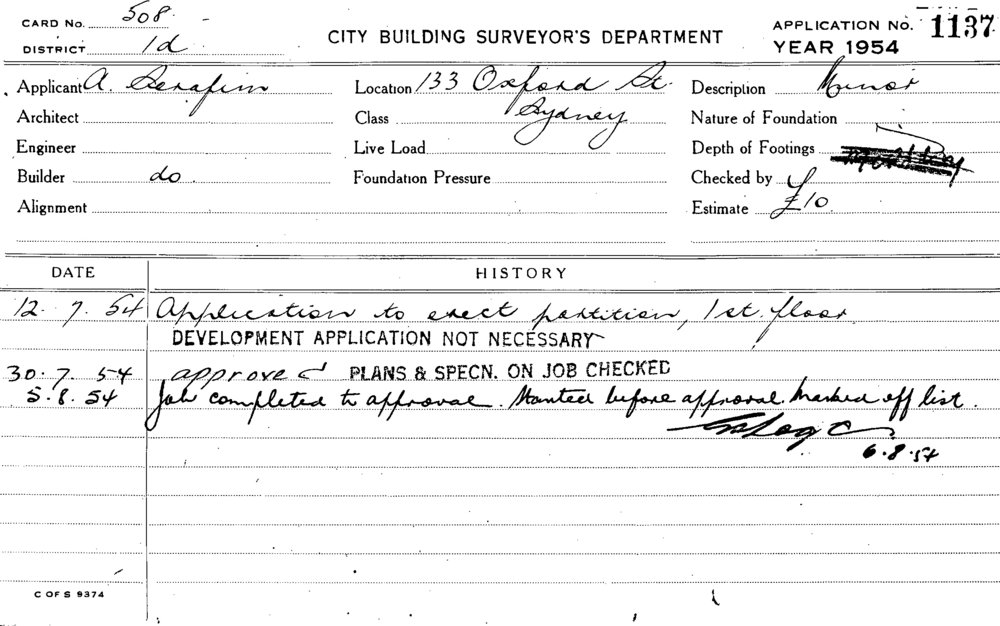 CARD No. 508.
DISTRICT 1d
CITY BUILDING SURVEYOR'S DEPARTMENT
APPLICATION No. 1137
YEAR 1954
Applicant A. Serafim
Location 133 Oxford St.
Sydney
Description Minor
Architect
Class
Nature of Foundation
Engineer
Live Load
Depth of Footings
Builder do
Foundation Pressure
Checked by
Alignment
Estimate £10.
DATE HISTORY
12. 7. 54 Application to erect partition, 1st. floor
DEVELOPMENT APPLICATION NOT NECESSARY
30. 7. 54 approved PLANS & SPECN. ON JOB CHECKED
5. 8. 54 Job completed to approval. Started before approval. Marked off list.
6. 8. 54
C OF S 9374